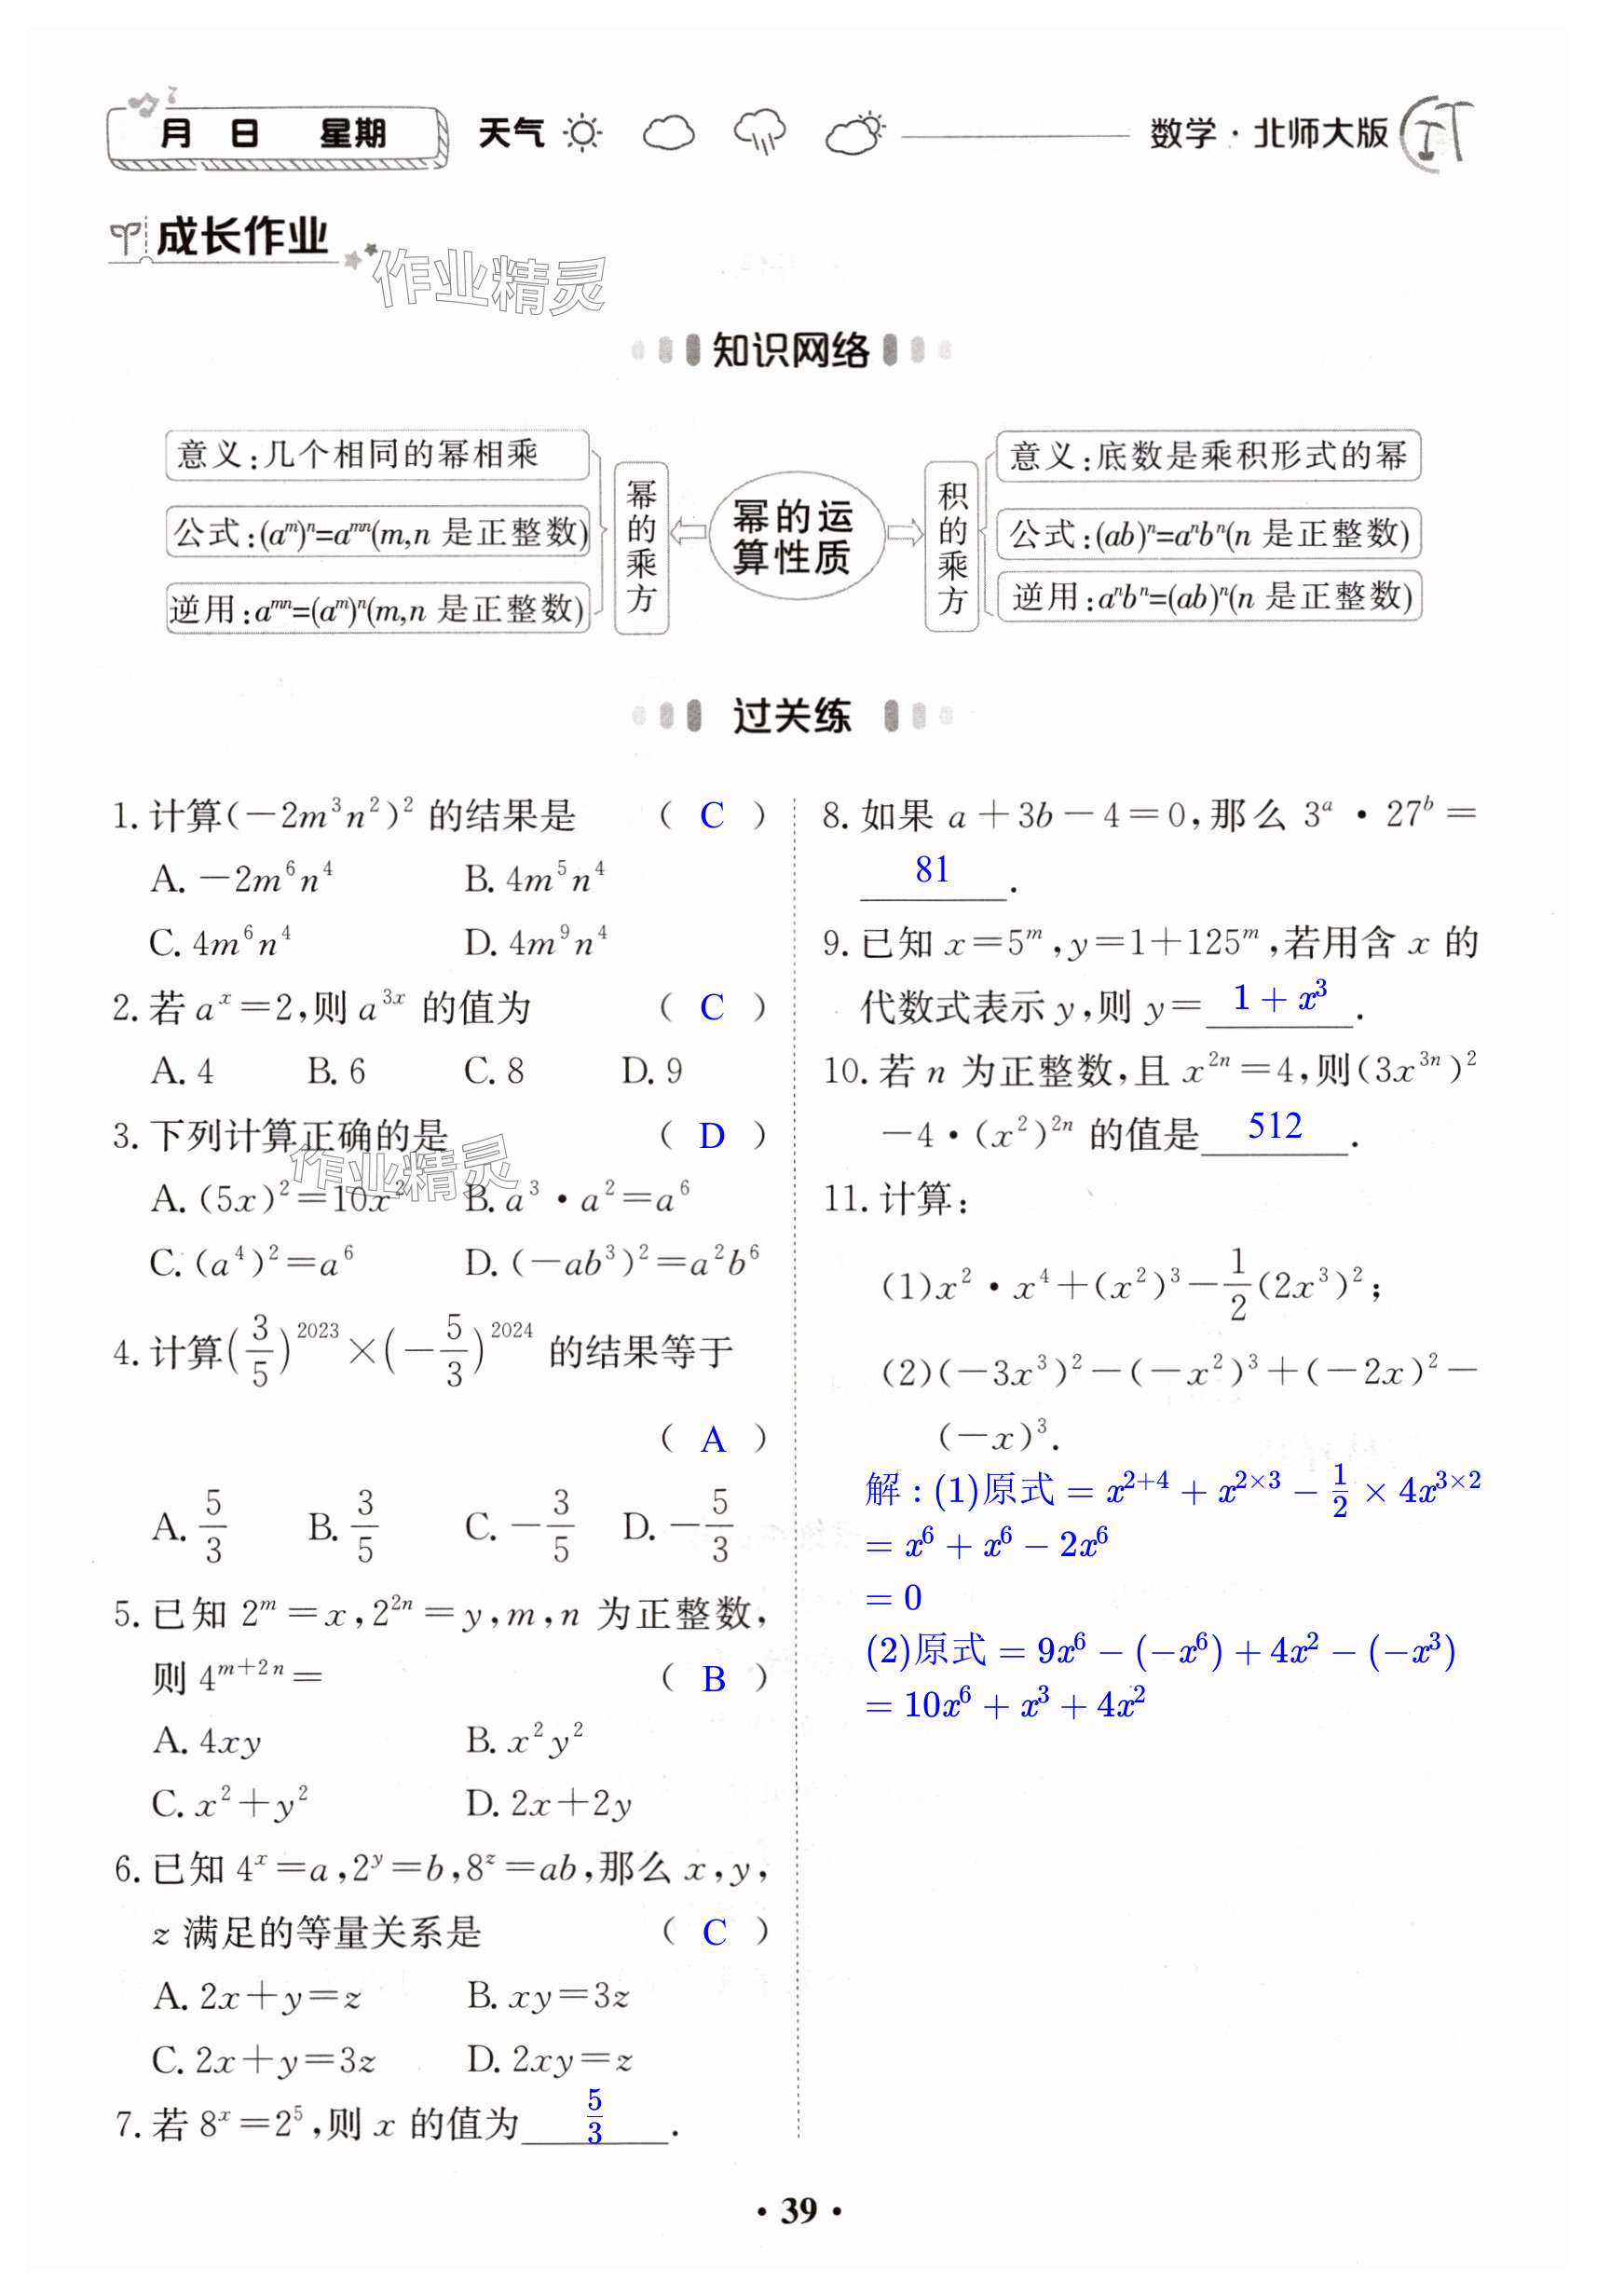 月 日 星期 天气 数学·北师大版
成长作业
作业精灵
知识网络
意义:几个相同的幂相乘
公式:(a^m)^n=a^{mn}(m,n 是正整数)
逆用:a^{mn}=(a^m)^n(m,n 是正整数)
幂的乘方
幂的运算性质
积的乘方
意义:底数是乘积形式的幂
公式:(ab)^n=a^n b^n(n 是正整数)
逆用:a^n b^n=(ab)^n(n 是正整数)
过关练
1. 计算(-2m³n²)² 的结果是 ( C )
A. -2m⁶n⁴ B. 4m⁵n⁴
C. 4m⁶n⁴ D. 4m⁹n⁴
2. 若 a^x=2,则 a^{3x} 的值为 ( C )
A. 4 B. 6 C. 8 D. 9
3. 下列计算正确的是 ( D )
作业精灵
A. (5x)²=10x² B. a³·a²=a⁶
C. (a⁴)²=a⁶ D. (-ab³)²=a²b⁶
4. 计算(3/5)^{2023}×(-5/3)^{2024} 的结果等于
( A )
A. 5/3 B. 3/5 C. -3/5 D. -5/3
5. 已知 2^m=x,2^{2n}=y,m,n 为正整数,
则 4^{m+2n}= ( B )
A. 4xy B. x²y²
C. x²+y² D. 2x+2y
6. 已知 4^x=a,2^y=b,8^z=ab,那么 x,y,
z 满足的等量关系是 ( C )
A. 2x+y=z B. xy=3z
C. 2x+y=3z D. 2xy=z
7. 若 8^x=2⁵,则 x 的值为 5/3 .
8. 如果 a+3b-4=0,那么 3^a·27^b=
81 .
9. 已知 x=5^m,y=1+125^m,若用含 x 的
代数式表示 y,则 y= 1+x³ .
10. 若 n 为正整数,且 x^{2n}=4,则(3x^{3n})²
-4·(x²)^{2n} 的值是 512 .
11. 计算:
(1)x²·x⁴+(x²)³-1/2(2x³)²;
(2)(-3x³)²-(-x²)³+(-2x)²-
(-x)³.
解:(1)原式=x^{2+4}+x^{2×3}-1/2×4x^{3×2}
=x⁶+x⁶-2x⁶
=0
(2)原式=9x⁶-(-x⁶)+4x²-(-x³)
=10x⁶+x³+4x²
·39·